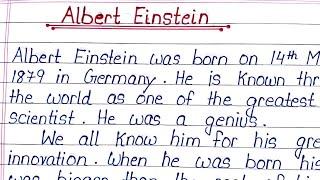 Albert Einstein
Albert Einstein was born on 14th M
1879 in Germany. He is known thr
the world as one of the greatest
scientist. He was a genius.
We all know him for his gre
innovation. When he was born his
was bigger than the rest of his